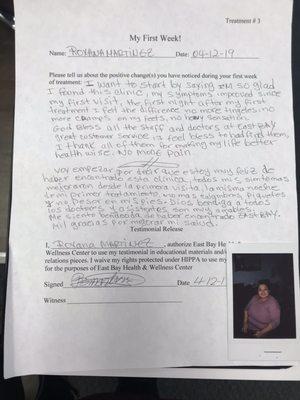 Treatment # 3
My First Week!
Name: ROXANA MARTINEZ Date: 04-12-19
Please tell us about the positive change(s) you have noticed during your first week
of treatment: I want to start by saying I'M SO glad
I found this clinic, my symptoms improved since
my first visit, the first night after my first
treatment I felt the difference no more tingles, no
more cramps on my feets, no heavy sensation.
God Bless all the staff and doctors at East BAY
great customer service, I feel bless to had find them,
I thank all of them for making my life better
health wise. No more pain
Voy empezar por decir que estoy muy feliz de
haber encontrado esta clinica, todos mis sintomas
mejoraron desde la primera visita, la misma noche
de mi primer tratamiento ya no
y no
los doctores y asistentes son muy amables.
Me siento bendecida de haber encontrado EAST BAY.
Mil gracias por mejorar mi salud.
Testimonial Release
I, Roxana MARTINEZ, authorize East Bay
Wellness Center to use my testimonial in educational materials and/
relations pieces. I waive my rights protected under HIPPA to use my
for the purposes of East Bay Health & Wellness Center
Signed Date 4-12-1
Witness